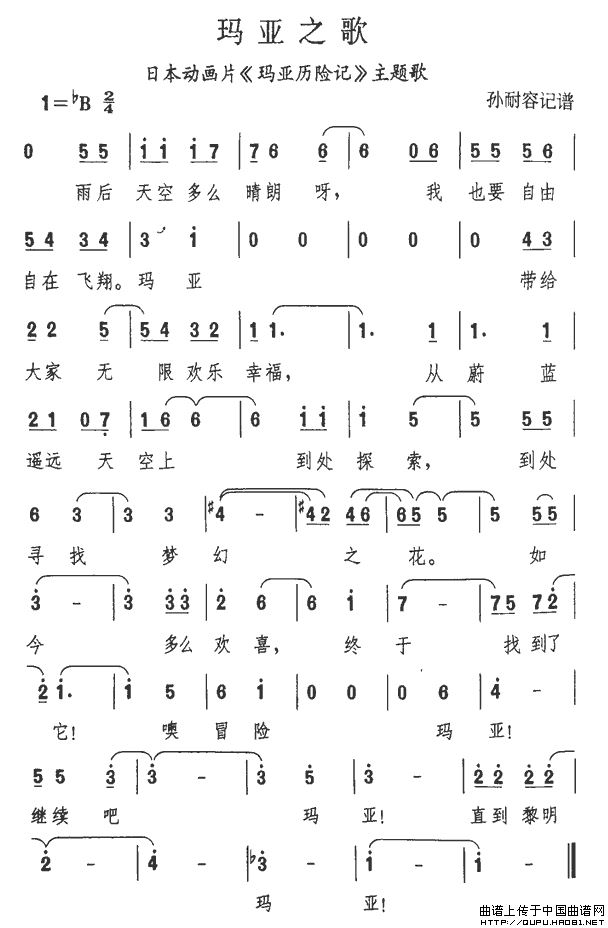 玛亚之歌
日本动画片《玛亚历险记》主题歌
1=♭B 2/4 孙耐容记谱
0 5 5 | i i i 7 | 7 6 6 | 6 0 6 | 5 5 5 5 |
雨后 天空多么 晴朗 呀, 我 也要自由
5 4 3 4 | 3 i | 0 0 | 0 0 | 0 4 3 |
自在 飞翔。玛 亚 带给
2 2 5 | 5 4 3 2 | 1 1. | 1. 1 | 1 1 |
大家 无 限欢乐 幸福, 从 蔚 蓝
2 1 0 7 | 1 6 6 | 6 i i | i 5 | 5 5 5 |
遥远 天 空上 到处 探 索, 到处
6 3 | 3 3 | ♯4 - | ♯4 2 4 6 | 6 5 5 | 5 5 5 |
寻 找 梦 幻 之 花。 如
3 - | 3 3 3 | 2 6 | 6 i | 7 - | 7 5 7 2 |
今 多么 欢 喜, 终 于 找 到了
2 i. | i 5 | 6 i | 0 0 | 0 6 | 4 - |
它! 噢 冒 险 玛 亚!
5 5 3 | 3 - | 3 5 | 3 - | 2 2 2 2 |
继续 吧 玛 亚! 直到 黎明
2 - | 4 - | ♭3 - | i - | i - ‖
玛 亚!
曲谱上传于中国曲谱网
HTTP://QUPU.HAO81.NET